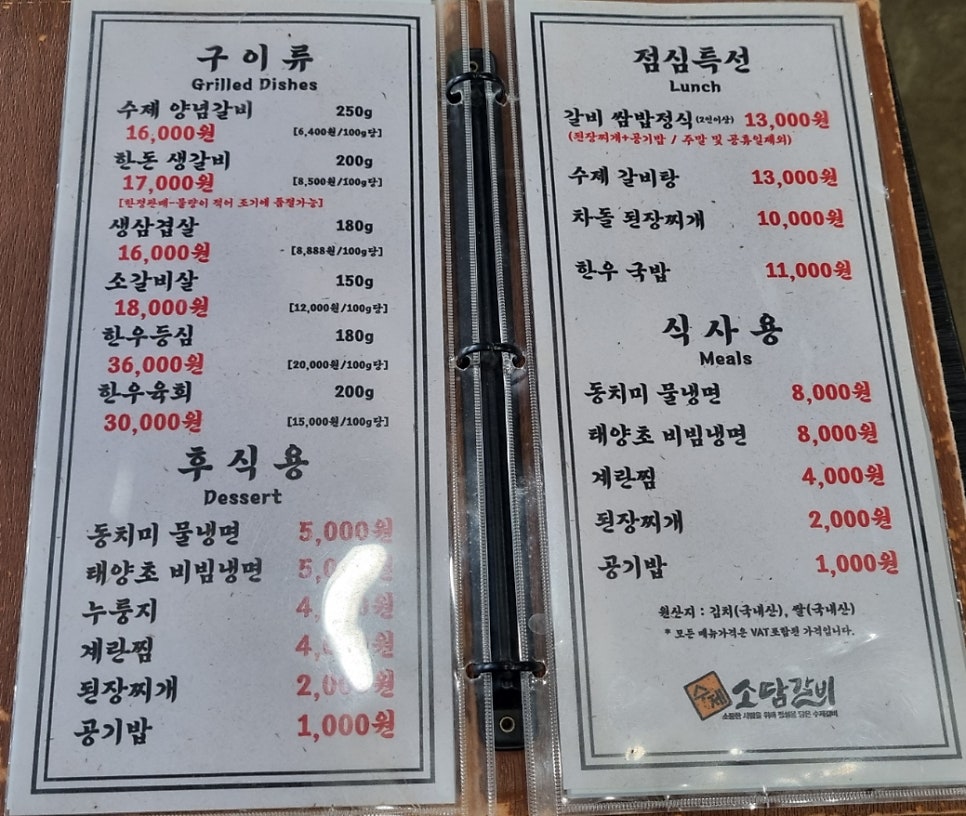 구이류
Grilled Dishes
수제 양념갈비 250g
16,000원 [6,400원/100g당]
한돈 생갈비 200g
17,000원 [8,500원/100g당]
[한정판매-물량이 적어 조기에 품절가능]
생삼겹살 180g
16,000원 [8,888원/100g당]
소갈비살 150g
18,000원 [12,000원/100g당]
한우등심 180g
36,000원 [20,000원/100g당]
한우육회 200g
30,000원 [15,000원/100g당]
후식용
Dessert
동치미 물냉면 5,000원
태양초 비빔냉면
누룽지
계란찜
된장찌개 2,000원
공기밥 1,000원
점심특선
Lunch
갈비 쌈밥정식 (2인이상) 13,000원
(된장찌개+공기밥 / 주말 및 공휴일제외)
수제 갈비탕 13,000원
차돌 된장찌개 10,000원
한우 국밥 11,000원
식사용
Meals
동치미 물냉면 8,000원
태양초 비빔냉면 8,000원
계란찜 4,000원
된장찌개 2,000원
공기밥 1,000원
원산지 : 김치(국내산), 쌀(국내산)
* 모든 메뉴가격은 VAT포함된 가격입니다.
수제 소담갈비
소중한 사람을 위해 정성을 담은 수제갈비